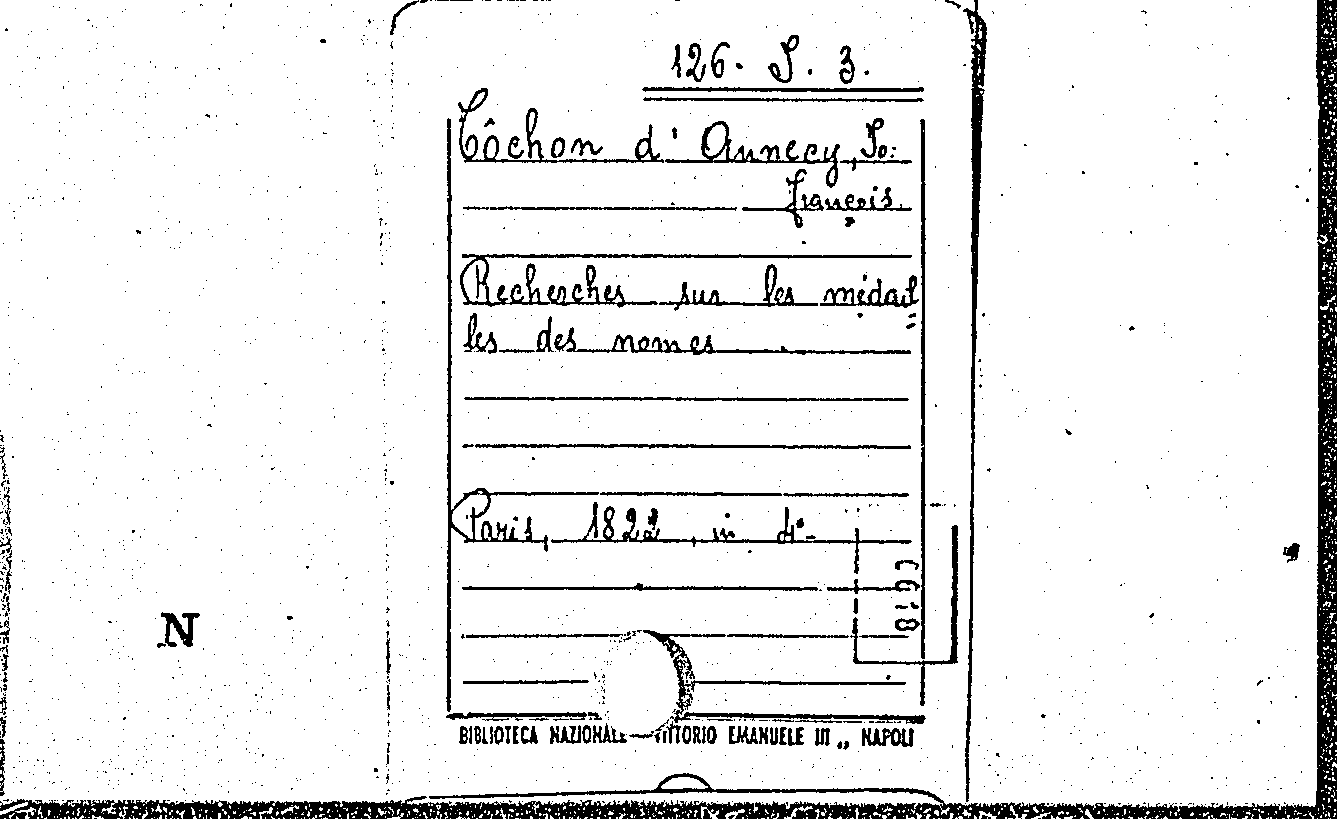 126. J. 3.
Tôchon d'Annecy, Jo:
françois.
Recherches sur les médail
les des nomes
Paris, 1822, in 4°-
0618
N
BIBLIOTECA NAZIONALE VITTORIO EMANUELE III „ NAPOLI